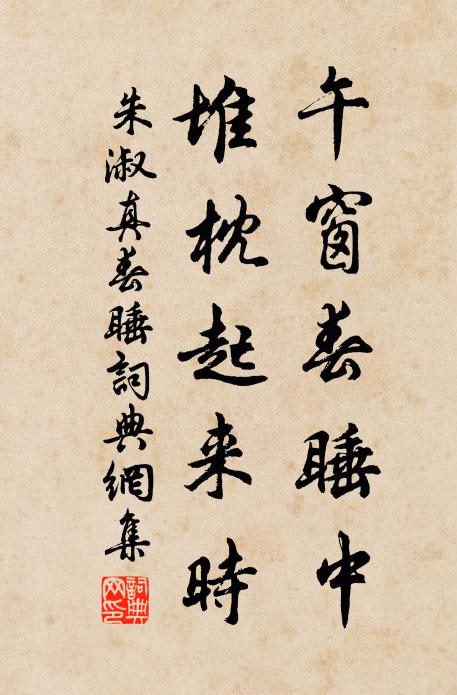 午窗春睡中
堆枕起来時
朱淑真春睡詞典網集
詞典網印